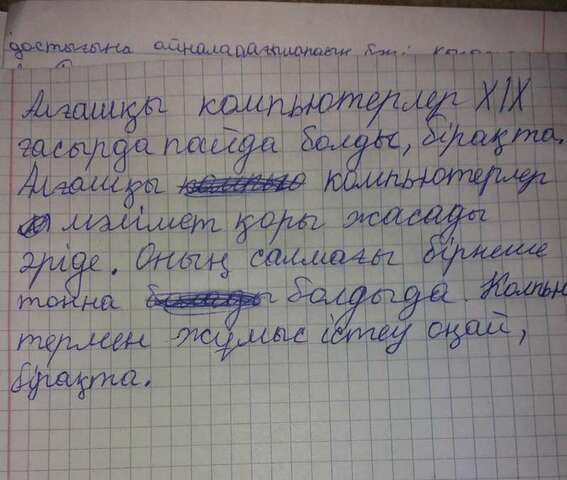 достығына
Алғашқы компьютерлер XIX
ғасырда пайда болды, бірақта.
Алғашқы компьютерлер
мәлімет қоры жасады
әріде. Оның салмағы бірнеше
тонна болдыда. Компью
термен жұмыс істеу оңай,
бірақта.